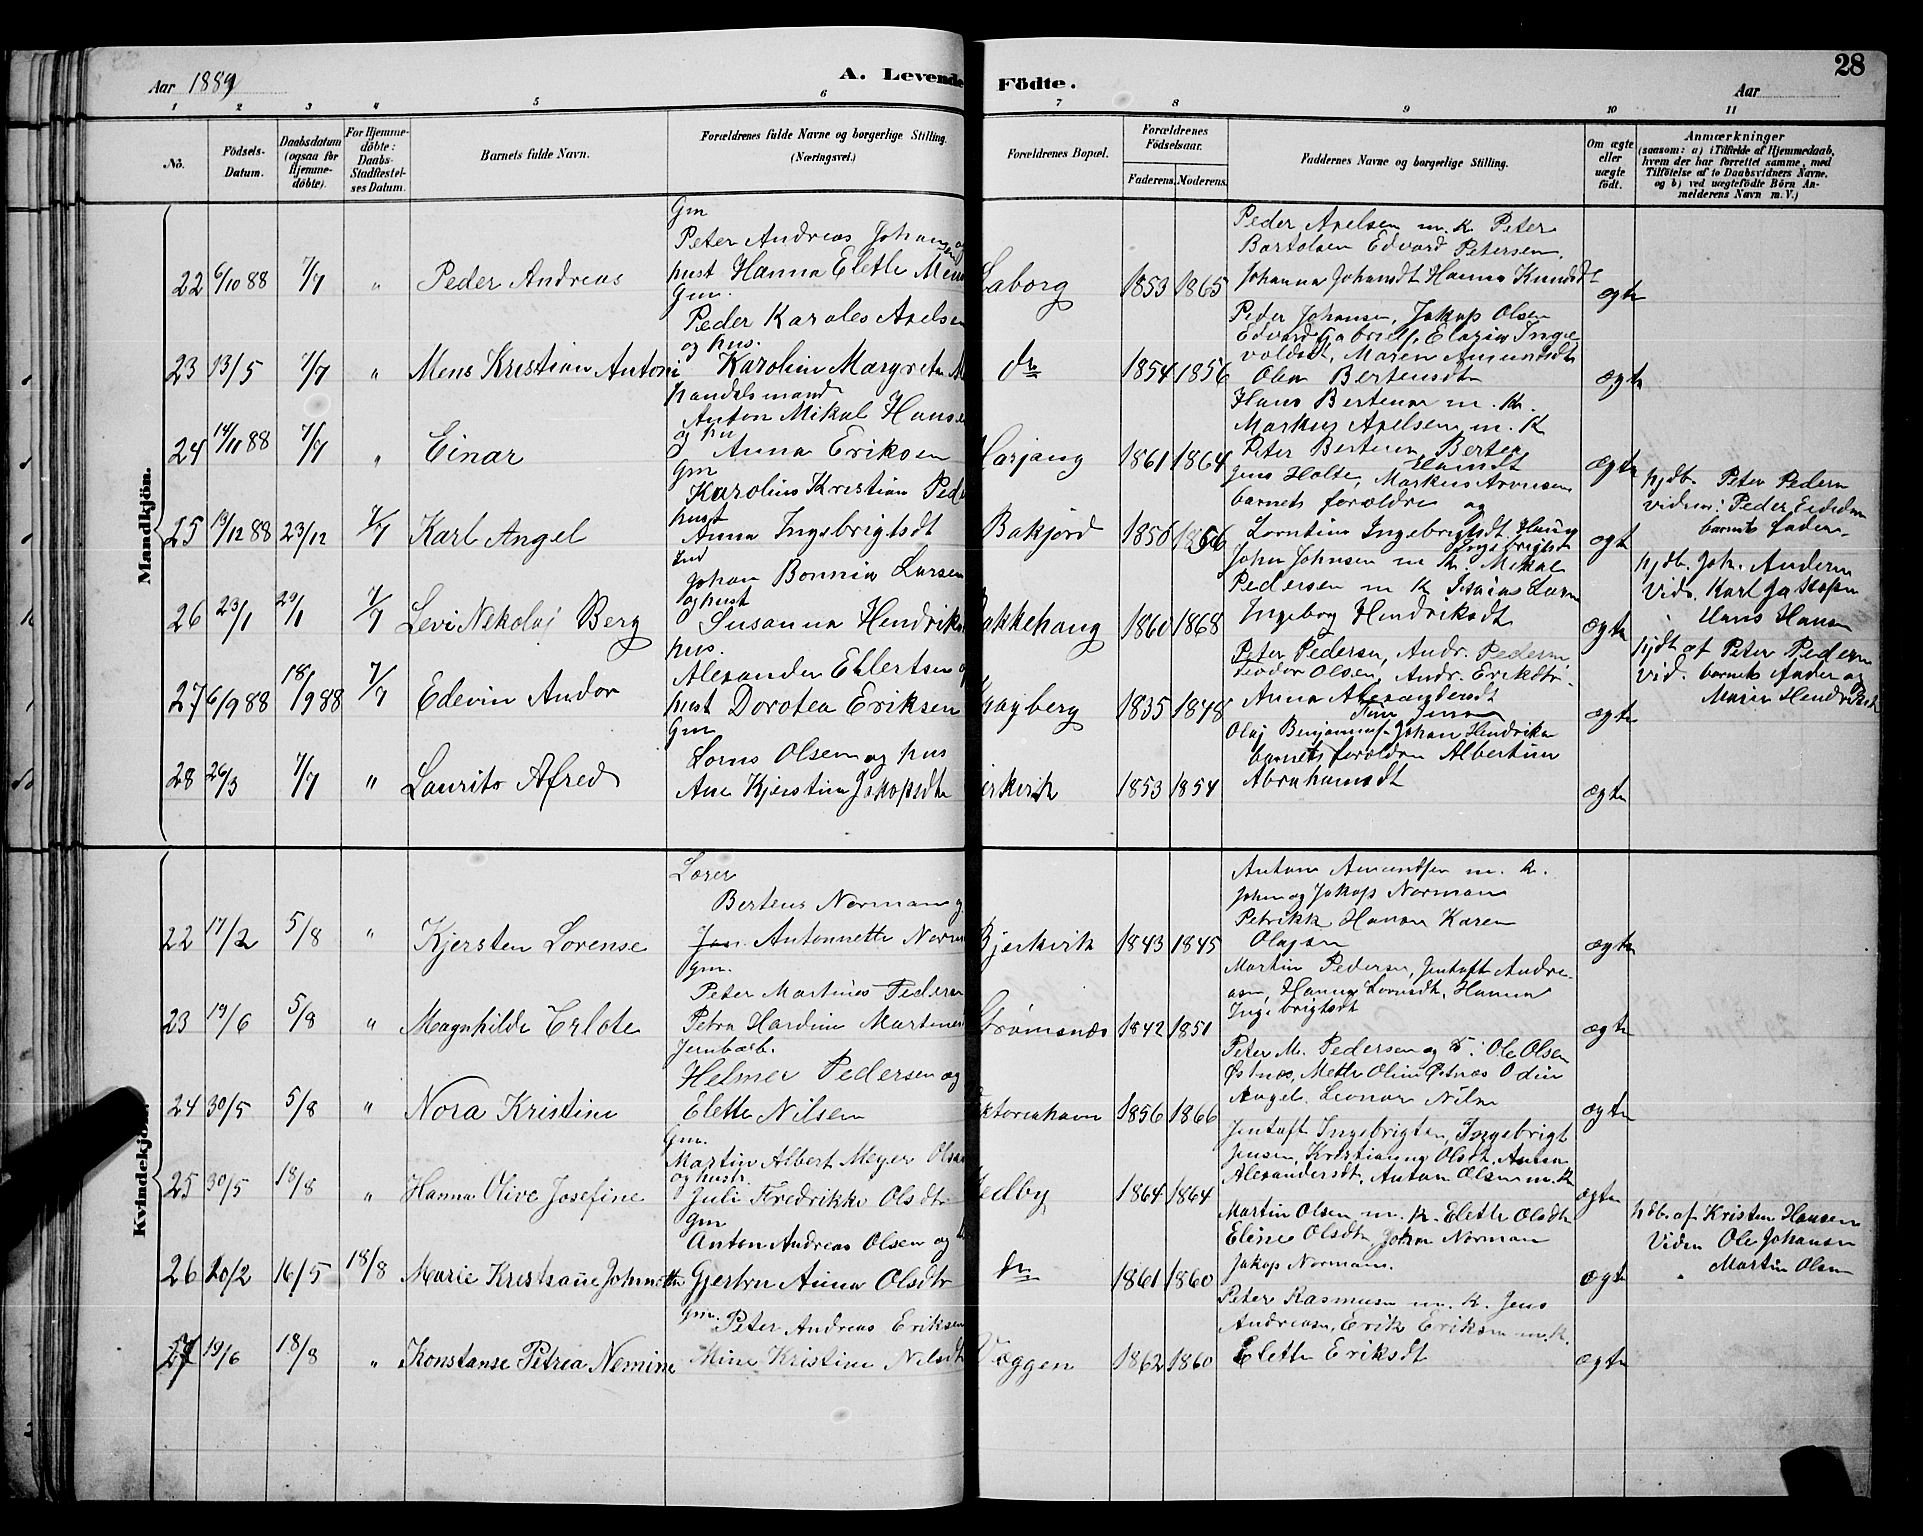 28
Aar 1889
A. Levende Födte.
Aar
1 2 3 4 5 6 7 8 9 10 11
No.
Födsels-Datum.
Daabsdatum (ogsaa for Hjemmedöbte).
For Hjemmedöbte: Daabs-Stadfæstelses Datum.
Barnets fulde Navn.
Forældrenes fulde Navne og borgerlige Stilling.
(Næringsvei.)
Forældrenes Bopæl.
Forældrenes Födselsaar.
Faderens. Moderens.
Faddernes Navne og borgerlige Stilling.
Om ægte eller uægte födt.
Anmærkninger
(saasom: a) i Tilfælde af Hjemmedaab, hvem der har forrettet samme, med Tilföielse af to Daabsvidners Navne, og b) ved uægtefödte Börn Anmelderens Navn m. V.)
Mandkjön.
Gm
Peter Andreas Johansen og
22 6/10 88 7/7 " Peder Andreas hust Hanna Elette Laborg 1853 1865 ægte
Peder Axelsen m. K Peter
Bartolsen Edvard Petersen
Johanna Johansdt Hanna Knudsdt
Gm.
Peder Karoles Axelsen
og hus.
23 13/5 7/7 " Mens Kristian Antoni Karolin Margrete do 1854 1856 ægte
Peder Johansen, Jakop Olsen
Edvard Gabriels, Ingevoldsdt, Maren Amundsdt
Olea Bertensdt
Handelsmand
Anton Mikal Hansen
og hu
24 14/11 88 7/7 " Einar Anna Eriksen Harjang 1861 1864 ægte
Hans Bertensen m. K.
Markus Axelsen m. K
Peter Bertensen Berten
Hansdt
Gm
Karolius Kristian Peder
hust
25 19/12 88 23/12 7/7 Karl Angel Anna Ingebrigtsdt Bakjord 1850 1866 ægt
Jens Holte, Markus Arensen
barnets forældre og
Lorntine Ingebrigtsdt
Ingebrigtsdt
hjdb. Peter Pedern
vidner: Peder
barnets fader.
Ind
Johan Bonnin Larsen
og hust
26 23/1 29/1 7/7 Levi Nekolaj Berg Susanna Hendriks Bakkehaug 1860 1868 ægte
John Johnsen m K. Mikal
Pedersen m K Isaias Larsen
Ingeborg Hendriksdt
hjdb. Joh. Andersen
Vid. Karl
Hans Hansen
hus.
Alexander Ehlertsen og
27 6/9 88 18/9 88 7/7 Edevin Andor hust Dorotea Eriksen 1835 1848 ægte
Peter Pedersen, Andr. Pedersen
Teodor Olsen, Andr. Eriksdtr
Anna Alexandersdt
hjdt af Peter Pedersen
vid. barnets fader og
Maria Hendriksdt
Gm
Lorns Olsen og hus
28 26/3 7/7 " Laurits Afred Ane Kjerstine Jakopsdtr 1853 1854 ægte
Olaj Benjaminsen Johan Hendriksen
barnets forældre Albertine
Abrahamsdt
Kvindekjön.
Lærer
Bertens Norman og
22 17/2 5/8 " Kjersten Lovense Antonnette Norman Bjerkvik 1843 1845 ægte
Antoni Amundsen m. K.
John og Jakop Norman
Petrikke Hansen Karen
Olajsen
gm.
Peter Martines Pedersen
23 19/6 5/8 " Magnhilde Erlote Petra Hardine Martines Strømsnæs 1842 1851 ægte
Martin Pedersen, Jentoft Andreasen, Hanna Lornsdt, Hanna
Ingebrigtsdt
Jernbarb.
Helmer Pedersen og
24 30/5 5/8 " Nora Kristine Elette Nilsen 1856 1866 ægte
Peter M. Pedersen og Ole Olsen
Østnæs, Mette Olin Østnæs Odin
Angel. Leonar Nilsen
Gm.
Martin Albert Meyer Olsen
og hustr.
25 30/5 18/8 " Hanna Olive Josefine Juli Fredrikke Olsdtr 1864 1864 ægte
Jentoft Ingebrigtsen, Ingebrigt
Jensen, Kristianna Olsdt, Anna
Alexandersdt, Anton Olsen m. K
gm
Anton Andreas Olsen og
26 20/2 16/5 18/8 Marie Kristiane Johnette Gjertru Anna Olsdtr do 1861 1860 ægte
Martin Olsen m. K. Elette Olsdtr
Eline Olsdtr, Johan Norman
Jakop Norman.
hdb. af Kristen Hansen
Viden Ole Johansen
" Martin Olsen
gm.
Peter Andreas Eriksen
27 19/6 18/8 " Konstanse Petrea Nemine Mine Kristine Nilsdtr Væggen 1862 1860 ægte
Peter Rasmusen m. K. Jens
Andreasen, Erik Eriksen m. K.
Elette Eriksdt